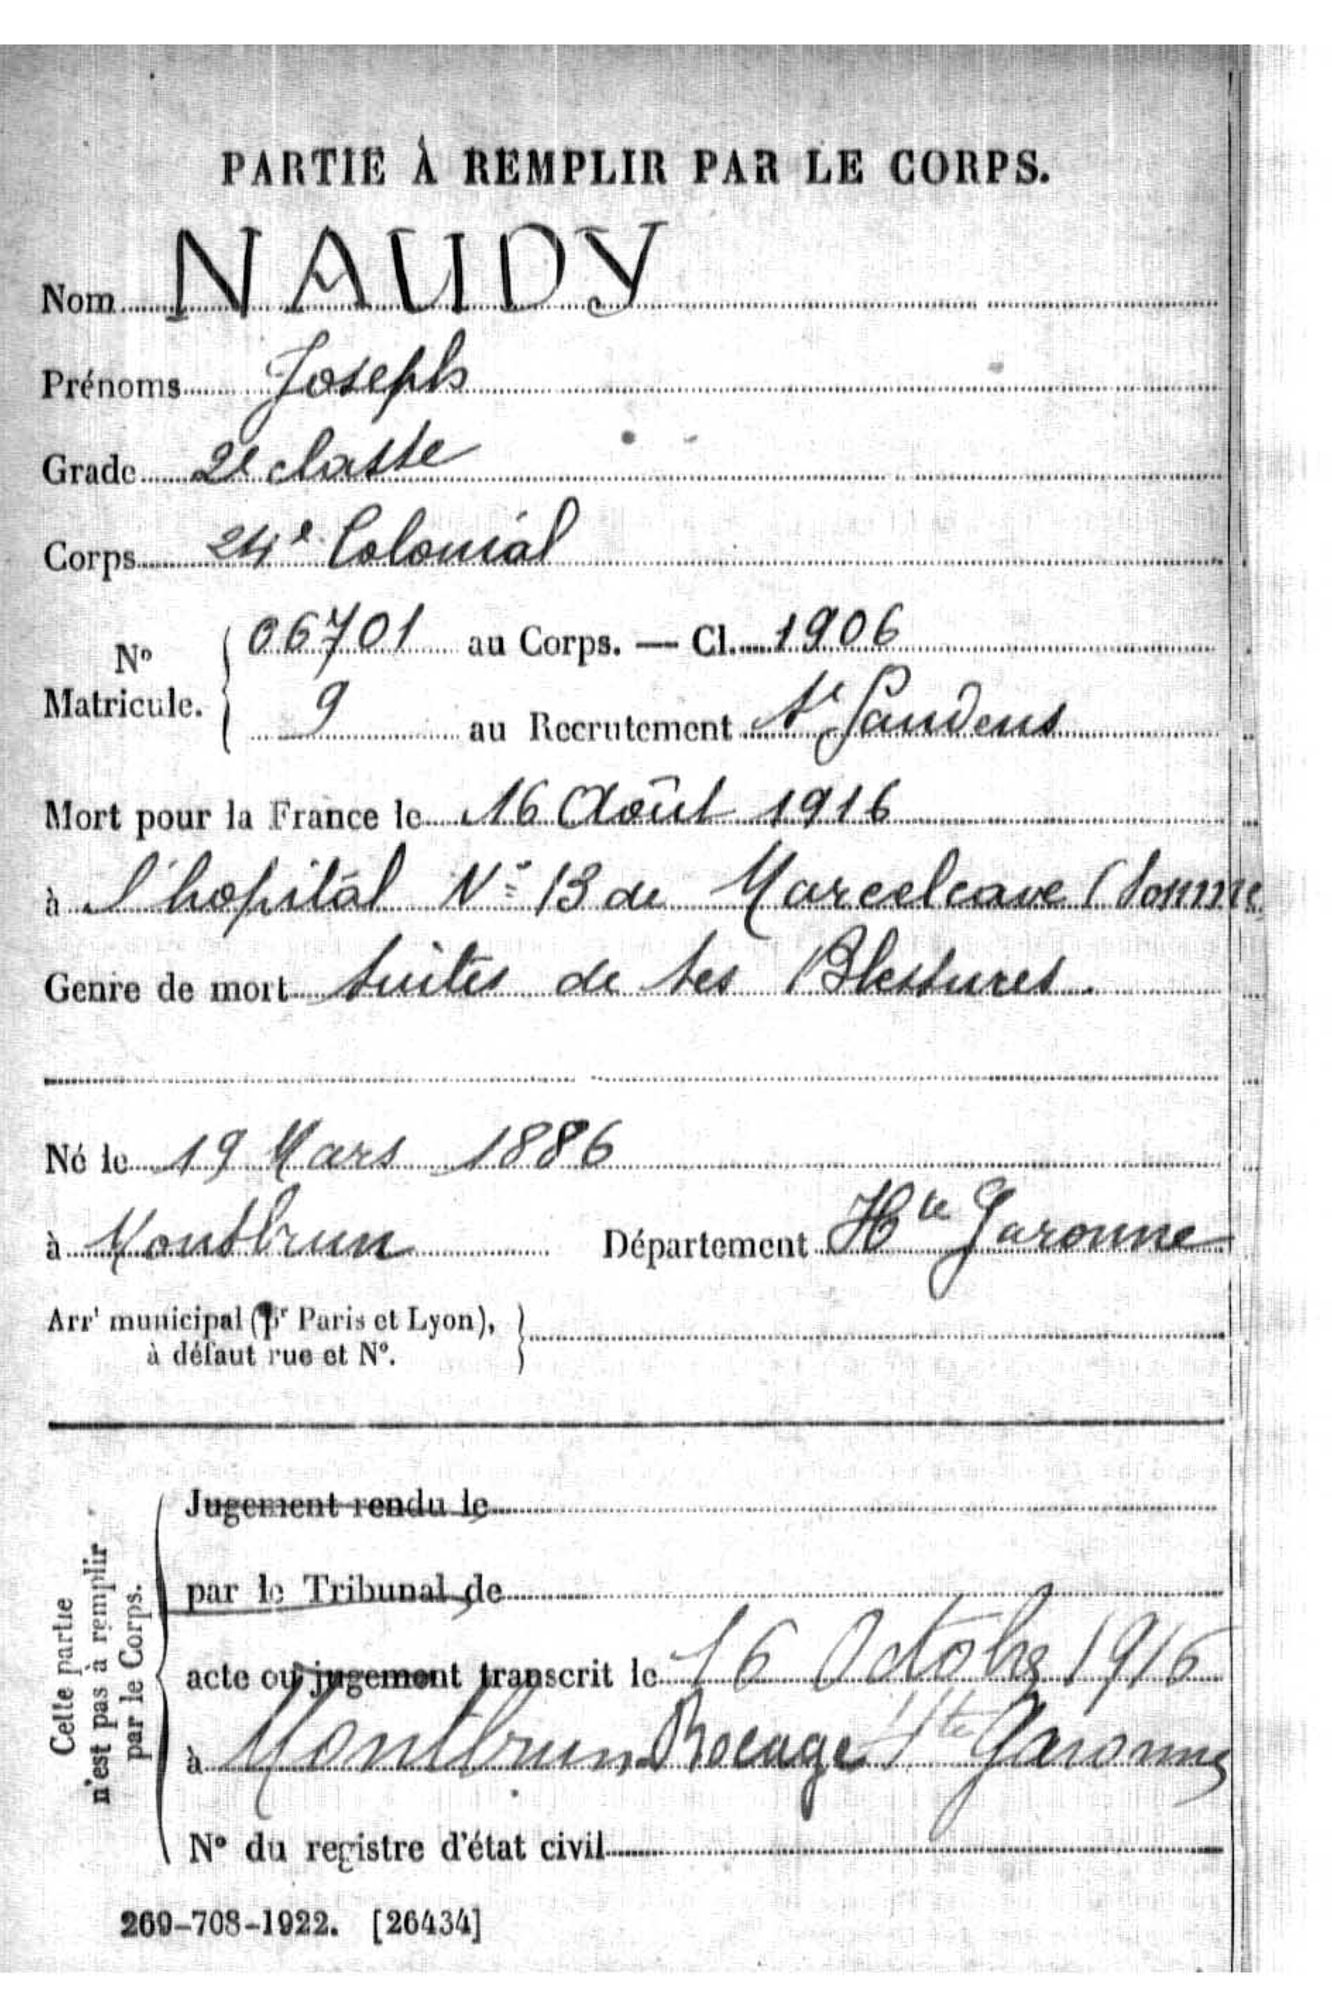 PARTIE À REMPLIR PAR LE CORPS.
Nom NAUDY
Prénoms Joseph
Grade 2e classe
Corps 24e Colonial
N° Matricule. { 06701 au Corps. — Cl. 1906
9 au Recrutement St Gaudens
Mort pour la France le 16 Août 1916
à l'hopital N° 13 de Marcelcave (Somme
Genre de mort suites de ses Blessures.
Né le 19 Mars 1886
à Montbrun Département Hte Garonne
Arrt municipal (pr Paris et Lyon), }
à défaut rue et N°.
Cette partie
n'est pas à remplir
par le Corps.
Jugement rendu le
par le Tribunal de
acte ou jugement transcrit le 16 Octobre 1916
à Montbrun-Bocage Hte Garonne
N° du registre d'état civil
269-708-1922. [26434]